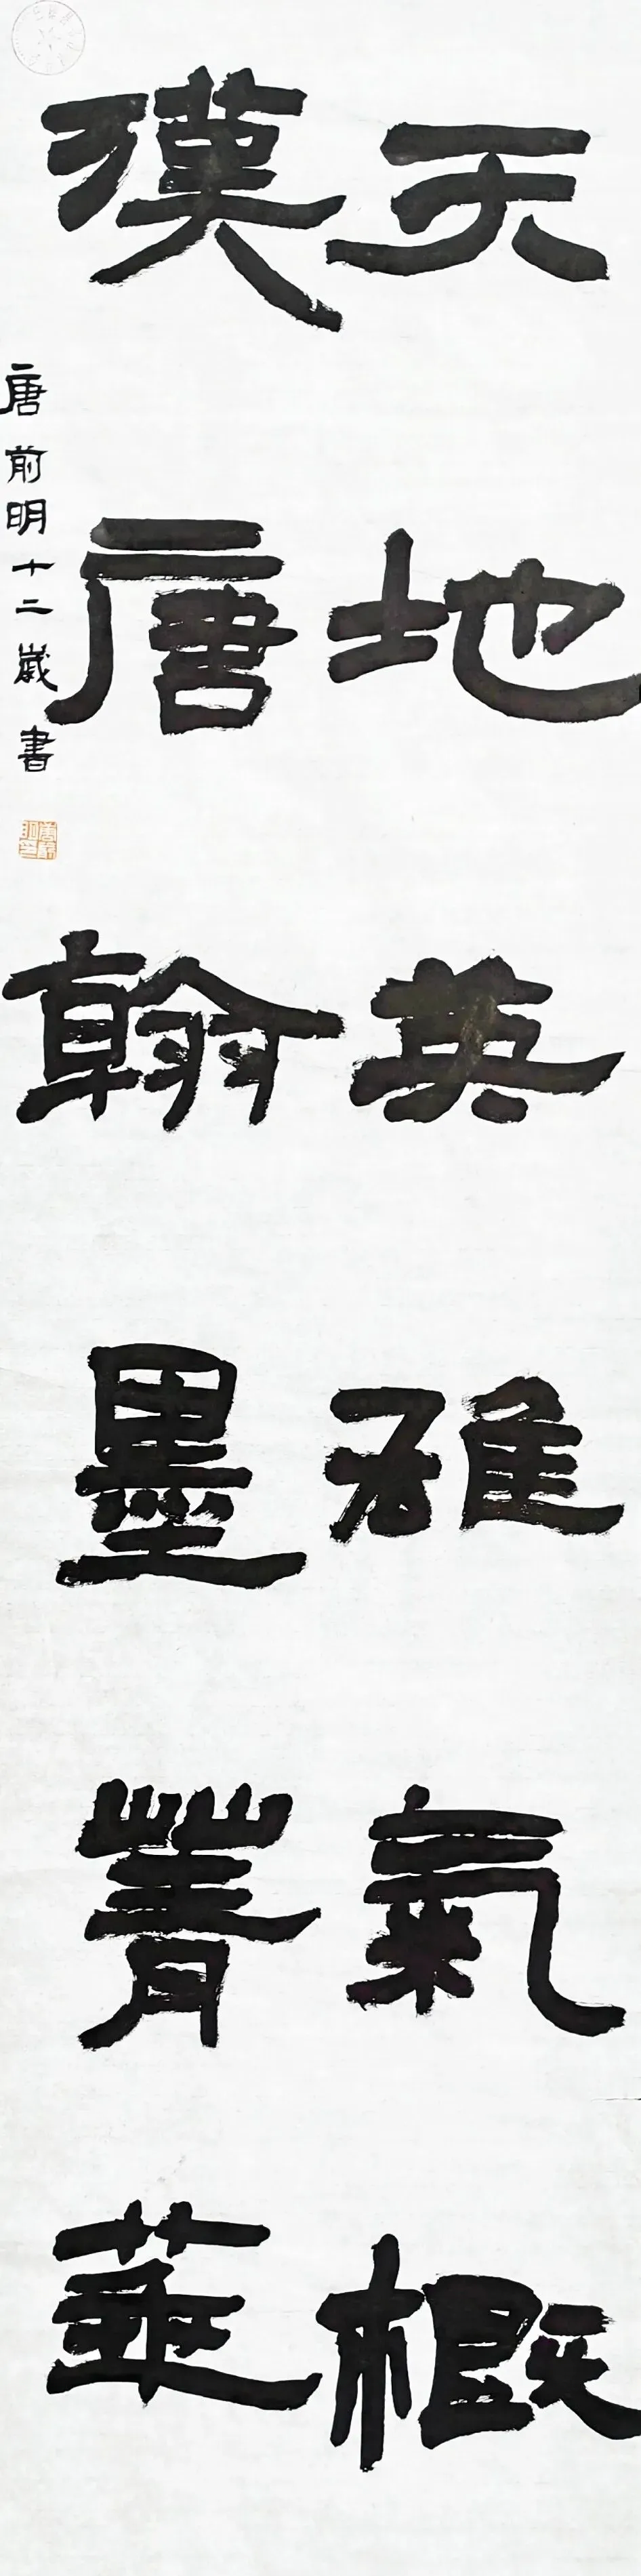 天地英雄氣概
漢唐翰墨菁華
唐前明十二歲書